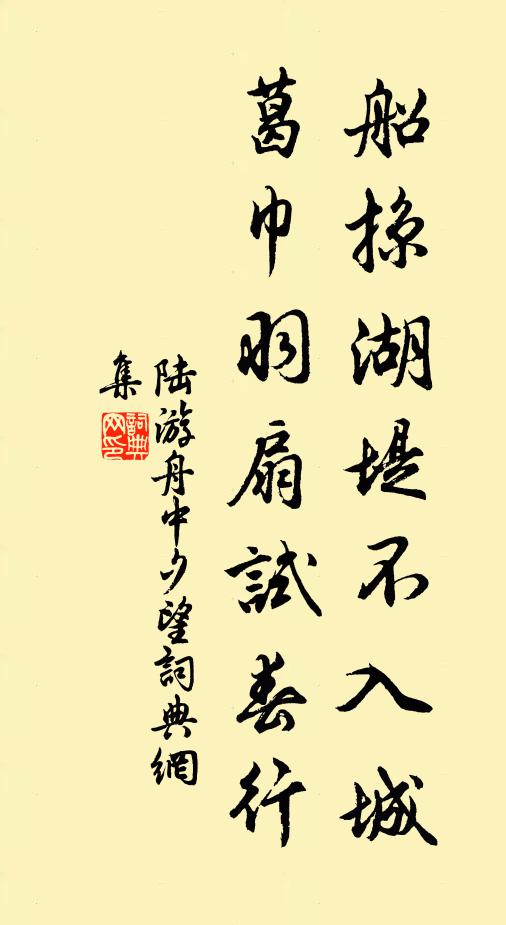 船掠湖堤不入城
葛巾羽扇試春行
陸游舟中夕望詞典網
集
詞典网印